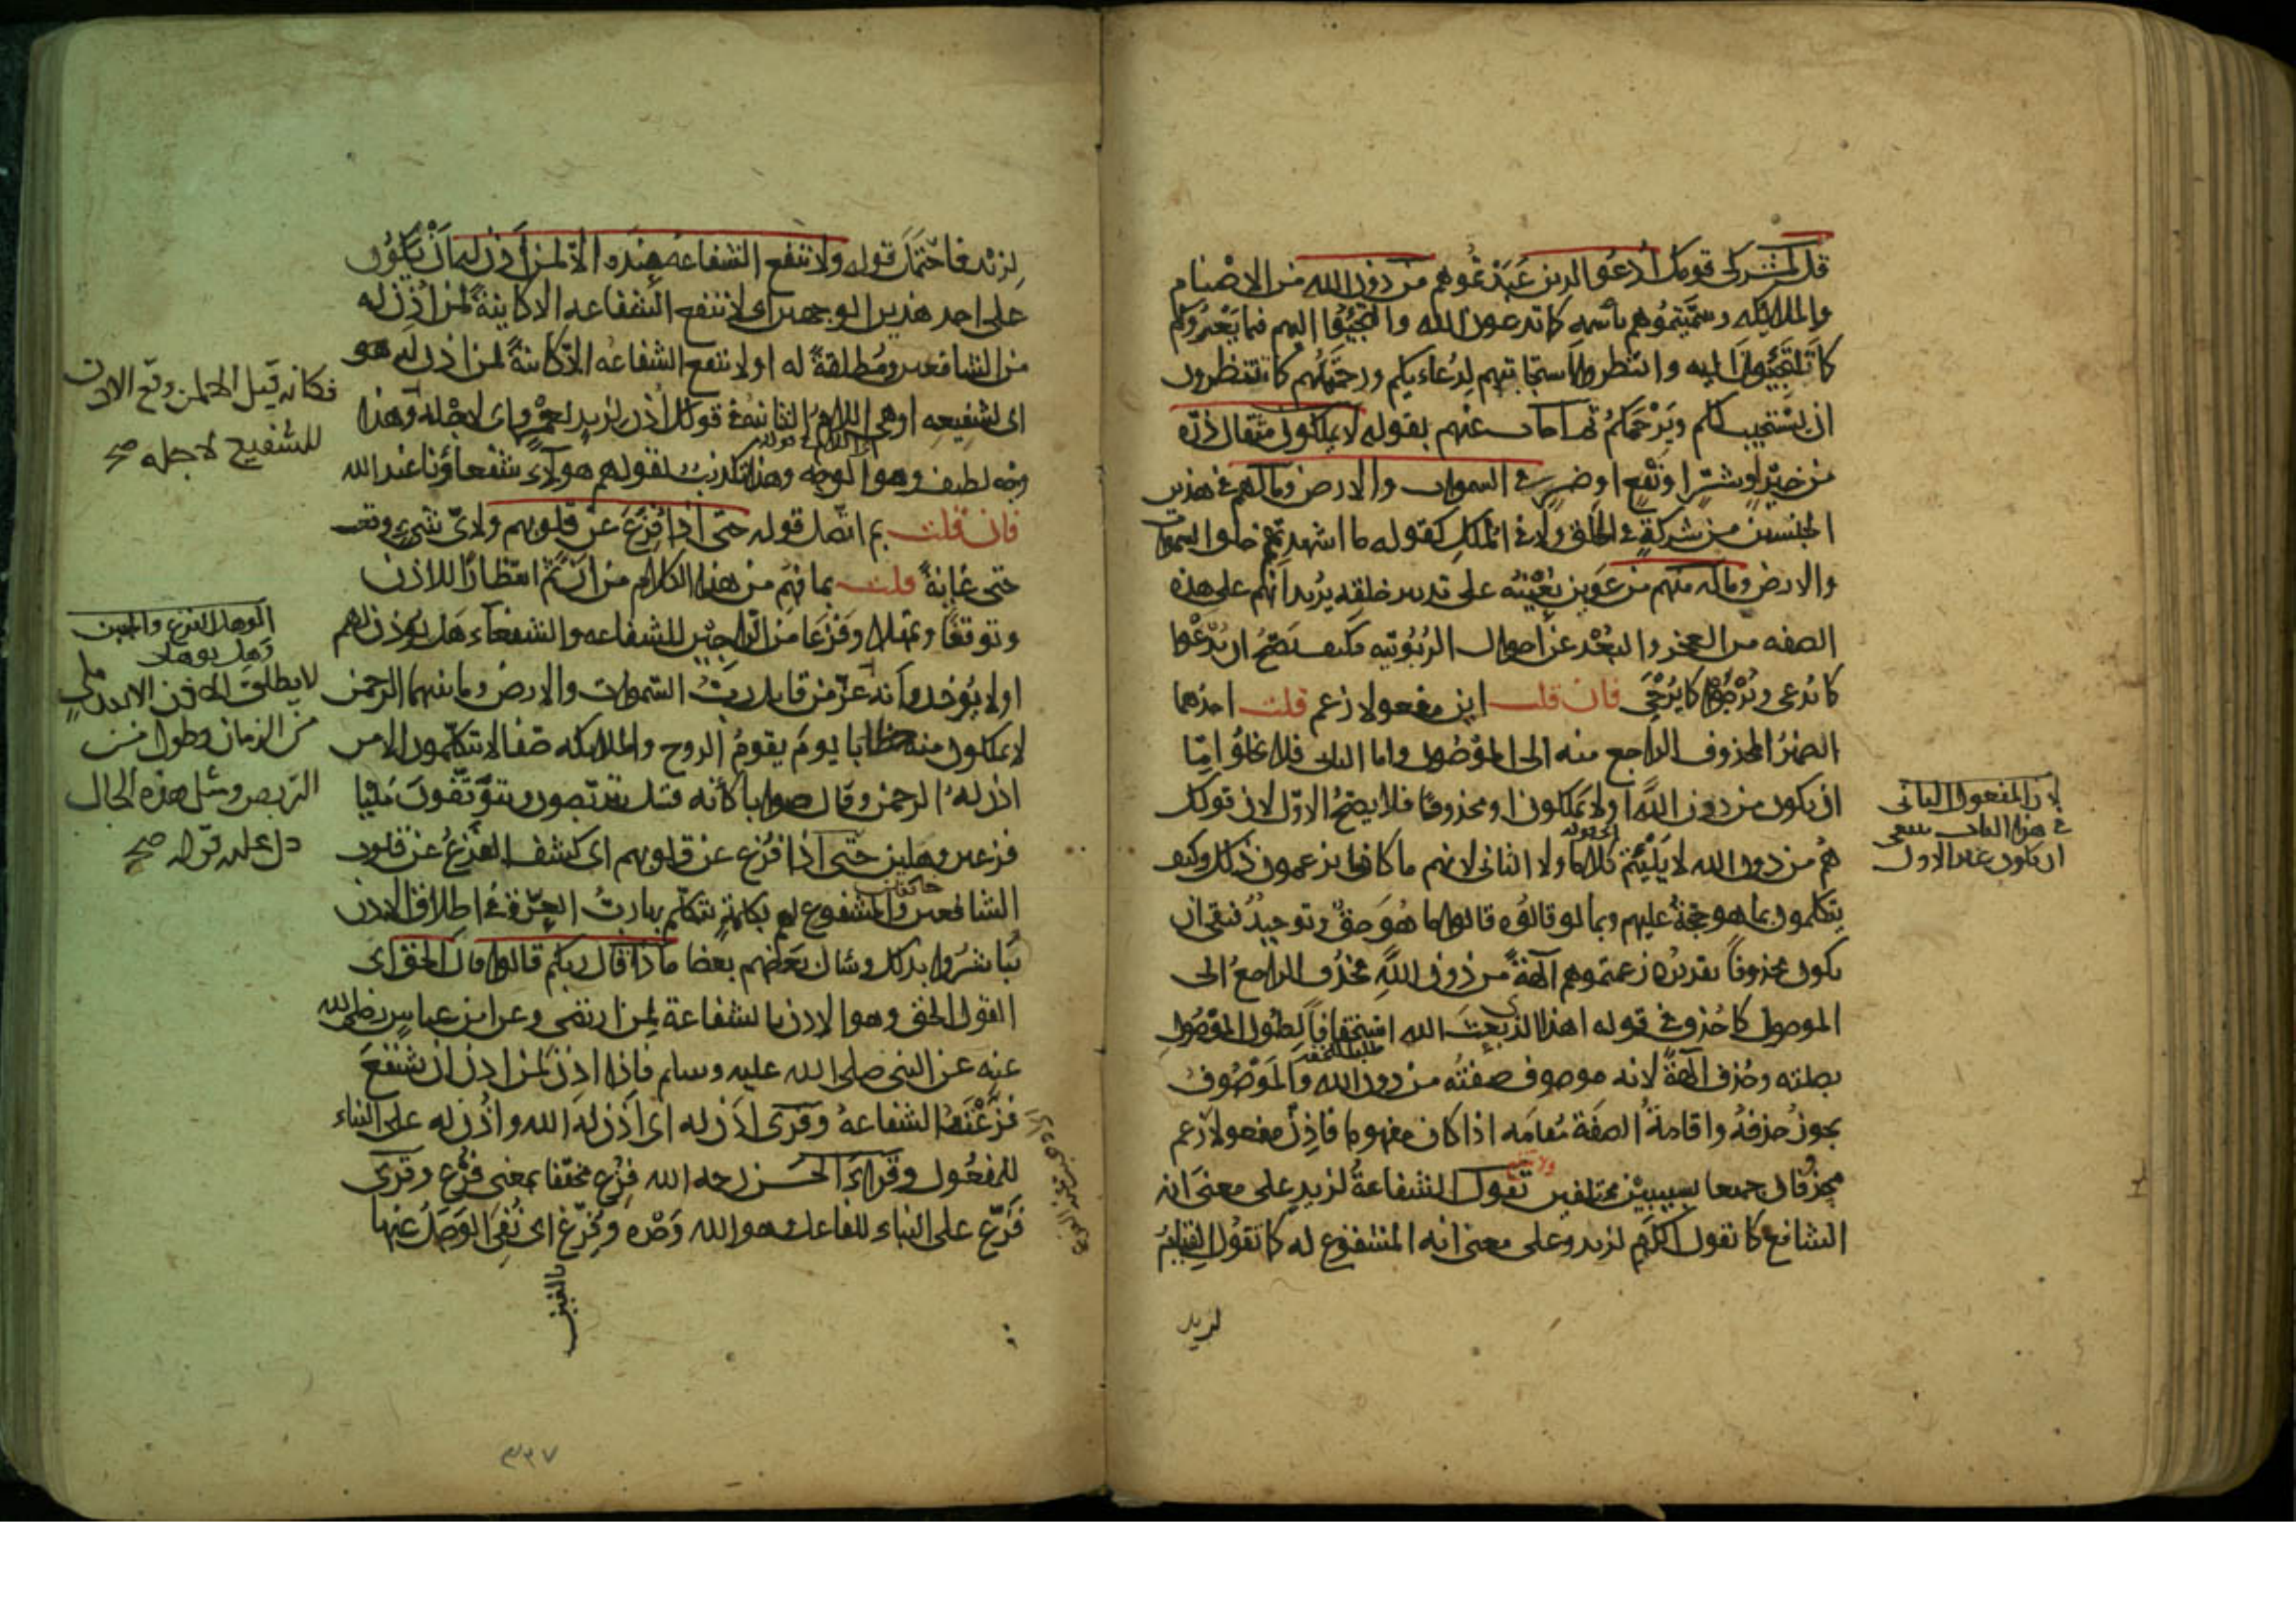 قل لمشركى قومك ادعوا الذين عبدتموهم من دون الله من الاصنام
والملائكه وسمّيتموهم باسمه كما تدعون الله والتجِئُوا اليهم فيما يَعْرُوكم
كما تلتجئون اليه وانتظروا استجابتهم لِدُعائِكم ورحمَتَهُم كما تنتظرون
ان يستجيب لكم ويَرْحَمَكُم ثم اجاب عنهم بقوله لا يملكون مثقال ذرّه
من خيرٍ او شرٍّ او نَفْعٍ او ضرٍّ فى السموات والارض وما لهم فى هذين
الجنسين من شركةٍ فى الخلق ولا فى الملك كقوله ما اشهدتهم خلق السموات
والارض وما له منهم من عوين يُعْينُه على تدبير خلقه يُريد انهم على هذه
الصفه من العجز والبُعْد عن احوال الرُبُوبيّه فكيف يَصِحُّ ان يُدْعَوا
كما يُدعى ويُرْجَوْا كما يُرْجَى فان قلت اين مفعولا زعم قلت احدُهما
الضميرُ المحذوف الراجع منه الى الموْصُول واما الثانى فلا يخلُو امّا
ان يكون من دون اللّه او لا يملكون او محذوفًا فلا يصِحُّ الاوّل لان قولك
هُم من دون الله لا يَلْتَئِمُ كلامًا ولا الثانى لانهم ما كانوا يزعمون ذلك وكيف
يتكلمون بما هو حجّةٌ عليهم وبما لو قالوُه قالوا ما هُوَ حقٌّ وتوحيدٌ فبقى ان
يكون محذوفًا تقديرُه زعمتموهم آلهةً من دون اللّهِ فحُذف الراجعُ الى
الموصول كما حُذِفَ فى قوله اهذا الذى بعثَ الله استخفافًا لِطُول الموْصُولِ
بصلته وحُذف آلهةً لانه موصوف صفتُه من دون الله والمَوْصُوفُ
يجوز حذفُهُ واقامةُ الصفَةِ مُقامَه اذا كان مفهوما فاذِنْ مفعولا زعم
محذوفان جميعا بسببيْن مختلفين تقول الشفاعةُ لزيدٍ على معنى انه
الشافع كما تقول الكَرَمُ لزيد وعلى معنى انه المشفوع له كما تقُول القِيامُ
لزيد
لان المفعول الثانى
فى هذا الباب ينبغى
ان يكون غير الاول
لِزيْد فاحتَمَلَ قوله ولا تنفع الشفاعةُ عِنْدَه الّا لمن أذِنَ له اَنْ يَكُون
على احد هذين الوجهين اى لا تنفع الشفاعه الا كاينةً لمن أُذِنَ له
من الشافعين ومُطلقةً له او لا تنفع الشفاعهُ الّا كاينةً لمن اذن له هو
اى لشفيعِه او هى اللام الثانيةُ فى قولك أُذن لزيدٍ لِعمْرٍو اى لاجْله وهذا
وجْه لطيف وهو الوجه وهذا تكذيبٌ لقولهم هولآء شفعاؤنا عند الله
فان قلت بم اتّصل قوله حتى اذا فُزّعَ عن قلوبهم ولاىّ شىءٍ وقعت
حتى غايةً قلت بما فُهِمَ من هذا الكلام من اَنَّ ثَمَّ انتظارًا للاذن
وتوقفًا وتمهّلا وفَزَعا من الرّاجِيْن للشفاعه والشفعاء هَل يُؤذن لهم
او لا يُؤذن وانه عزّ من قايل ربّ السّموات والارض وما بينهما الرحمنِ
لا يملكون منه خطابا يومَ يقومُ الروح والملائكه صَفّا لا يتكلّمون الا من
اذن لهُ الرحمن وقال صوابا كأنه قيل يتربّصون ويتَوَقّفونَ مَليّا
فزعين وهلين حتى اذا فُزّع عن قلوبهم اى كشف الفَزَعُ عن قلوب
الشافعين والمشفوع لهم بكلمةٍ يتكلّم بها ربُّ العِزّةِ فى اطلاق الاذن
تَباشَرُوا بذلك وسَأل بَعْضُهم بعضا ماذا قال ربكم قالوا قال الحقّ اى
القول الحق وهو الاذن بالشفاعة لِمن ارتضى وعن ابن عباسٍ رضى الله
عنه عن النبى صلى الله عليه وسلم فاذا اذِنَ لمن اذِنَ ان يشفَعَ
فزَّعَتْهُ الشفاعهُ وقرئ اَذِنَ له اى اَذِنَ لَهُ الله واُذِن له على البناء
للمفعُول وقرأ الحَسَن رحمه الله فُزِع مخفّفا بمعنى فُزِّع وقرئ
فَزَّعَ على البناء للفاعل وهو الله وَحْدَه وفُرِّغ اى نُفِىَ الوَجَلُ عنها
فكانه قيل الا لمن وقع الاذن
للشفيع لاجله صح
الوهل الفزع والجبن
وَهِل يوهل
لا يطلق الاذن الا بعد ملىٍّ
من الزمان وطول من
التربص ومثل هذه الحال
دل عليه قوله صح
٣٣٧